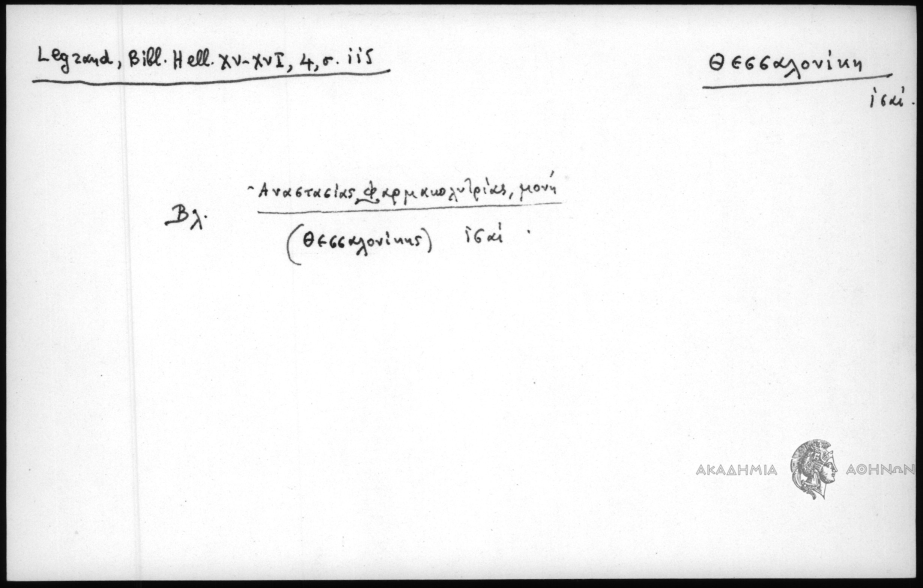 Legrand, Bibl. Hell. XV-XVI, 4, σ. 115
Θεσσαλονίκη
ις αι.
Βλ. Ἀναστασίας Φαρμακολυτρίας, μονή
(Θεσσαλονίκης) ις αι.
ΑΚΑΔΗΜΙΑ ΑΘΗΝΩΝ